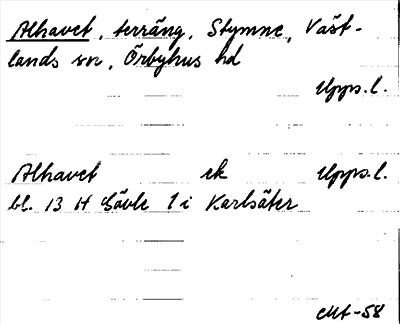 Alhavet, terräng, Stymne, Väst-
lands sn, Örbyhus hd
Upps.l.
Alhavet ek Upps.l.
bl. 13 H Gävle 1 i Karlsäter
Mt-58